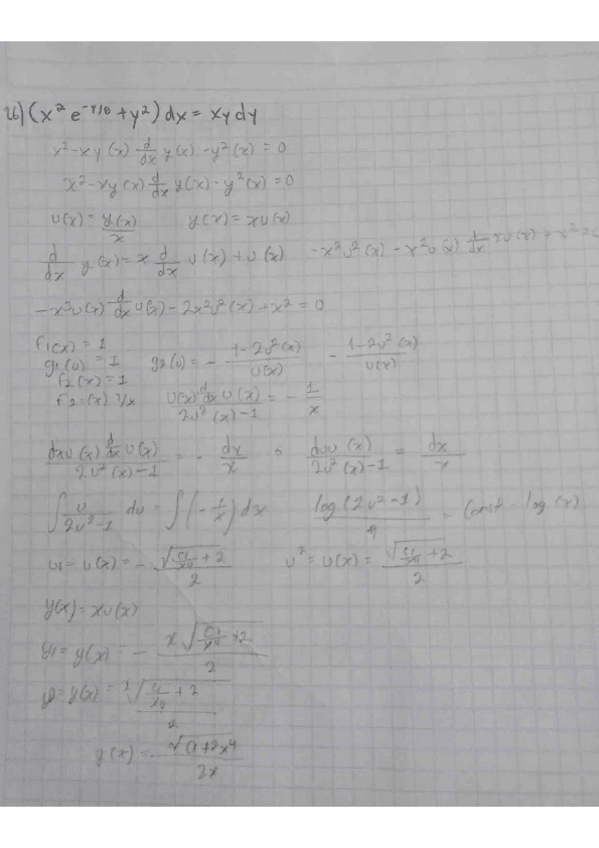 26) (x² e^{-y/8} + y²) dx = xy dy
x² - xy(x) d/dx y(x) - y²(x) = 0
x² - xy(x) d/dx y(x) - y²(x) = 0
u(x) = y(x)/x    y(x) = xu(x)
d/dx y(x) = x d/dx u(x) + u(x)    -x²u²(x) - x²u(x) d/dx xu(x) + x² =
-x³u(x) d/dx u(x) - 2x²u²(x) + x² = 0
f₁(x) = 1
g₁(u) = 1    g₂(u) = - (1-2u²(x))/u(x)    - (1-2u²(x))/u(x)
f₂(x) = 1
f₂ = (x) 1/x    u(x) d/dx u(x) / (2u²(x)-1) = - 1/x
dxu(x) d/dx u(x) / (2u²(x)-1) = - dx/x    o    duu(x) / (2u²(x)-1) = dx/x
∫ u/(2u²-1) du = ∫ (-1/x) dx    log(2u²-1)/4 = Const - log(x)
u₁ = u(x) = - √(C₁/x⁴ + 2) / 2    u² = u(x) = √(C₁/x⁴ + 2) / 2
y(x) = xu(x)
y₁ = y(x) = - x√(C₁/x⁴ + 2) / 2
y² = y(x) = x√(C₁/x⁴ + 2) / 2
y(x) = - √(C₁ + 2x⁴) / 2x